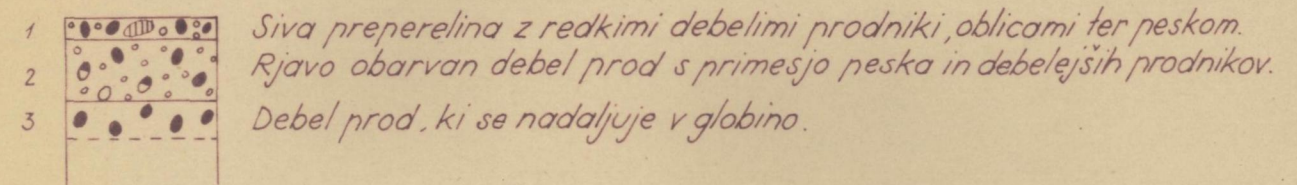 1 Siva preperelina z redkimi debelimi prodniki, oblicami ter peskom.
2 Rjavo obarvan debel prod s primesjo peska in debelejših prodnikov.
3 Debel prod, ki se nadaljuje v globino.